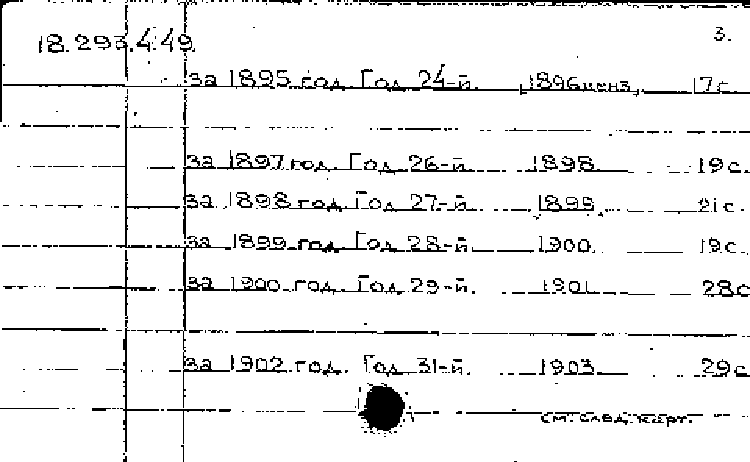 18.293.4.49. 3.
за 1895 год. Год 24-й. 1896 ценз. 17 с.
за 1897 год. Год 26-й. 1898. 19 с.
за 1898 год. Год 27-й. 1899. 21 с.
за 1899 год. Год 28-й. 1900. 19 с.
за 1900 год. Год 29-й. 1901. 28 с
за 1902 год. Год 31-й. 1903. 29 с
см. след. карт.